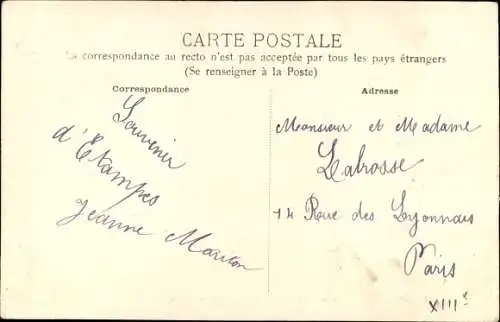 CARTE POSTALE
La correspondance au recto n'est pas acceptée par tous les pays étrangers
(Se renseigner à la Poste)
Correspondance
Souvenir
d'Étampes
Jeanne Mariton
Adresse
Monsieur et Madame
Labrosse
14 Rue des Lyonnais
Paris
XIIIe